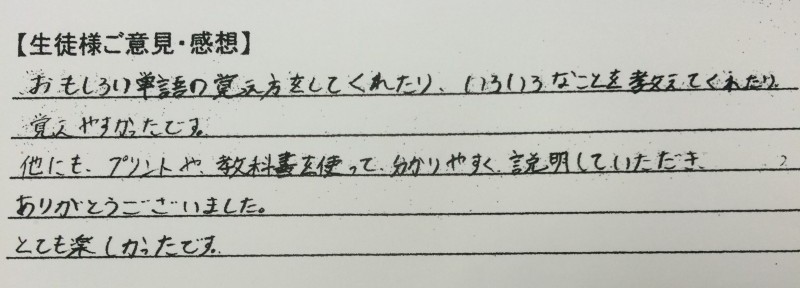 【生徒様ご意見・感想】
おもしろい単語の覚え方をしてくれたり、いろいろなことを教えてくれたり、
覚えやすかったです。
他にも、プリントや、教科書を使って、分かりやすく、説明していただき、
ありがとうございました。
とても楽しかったです。